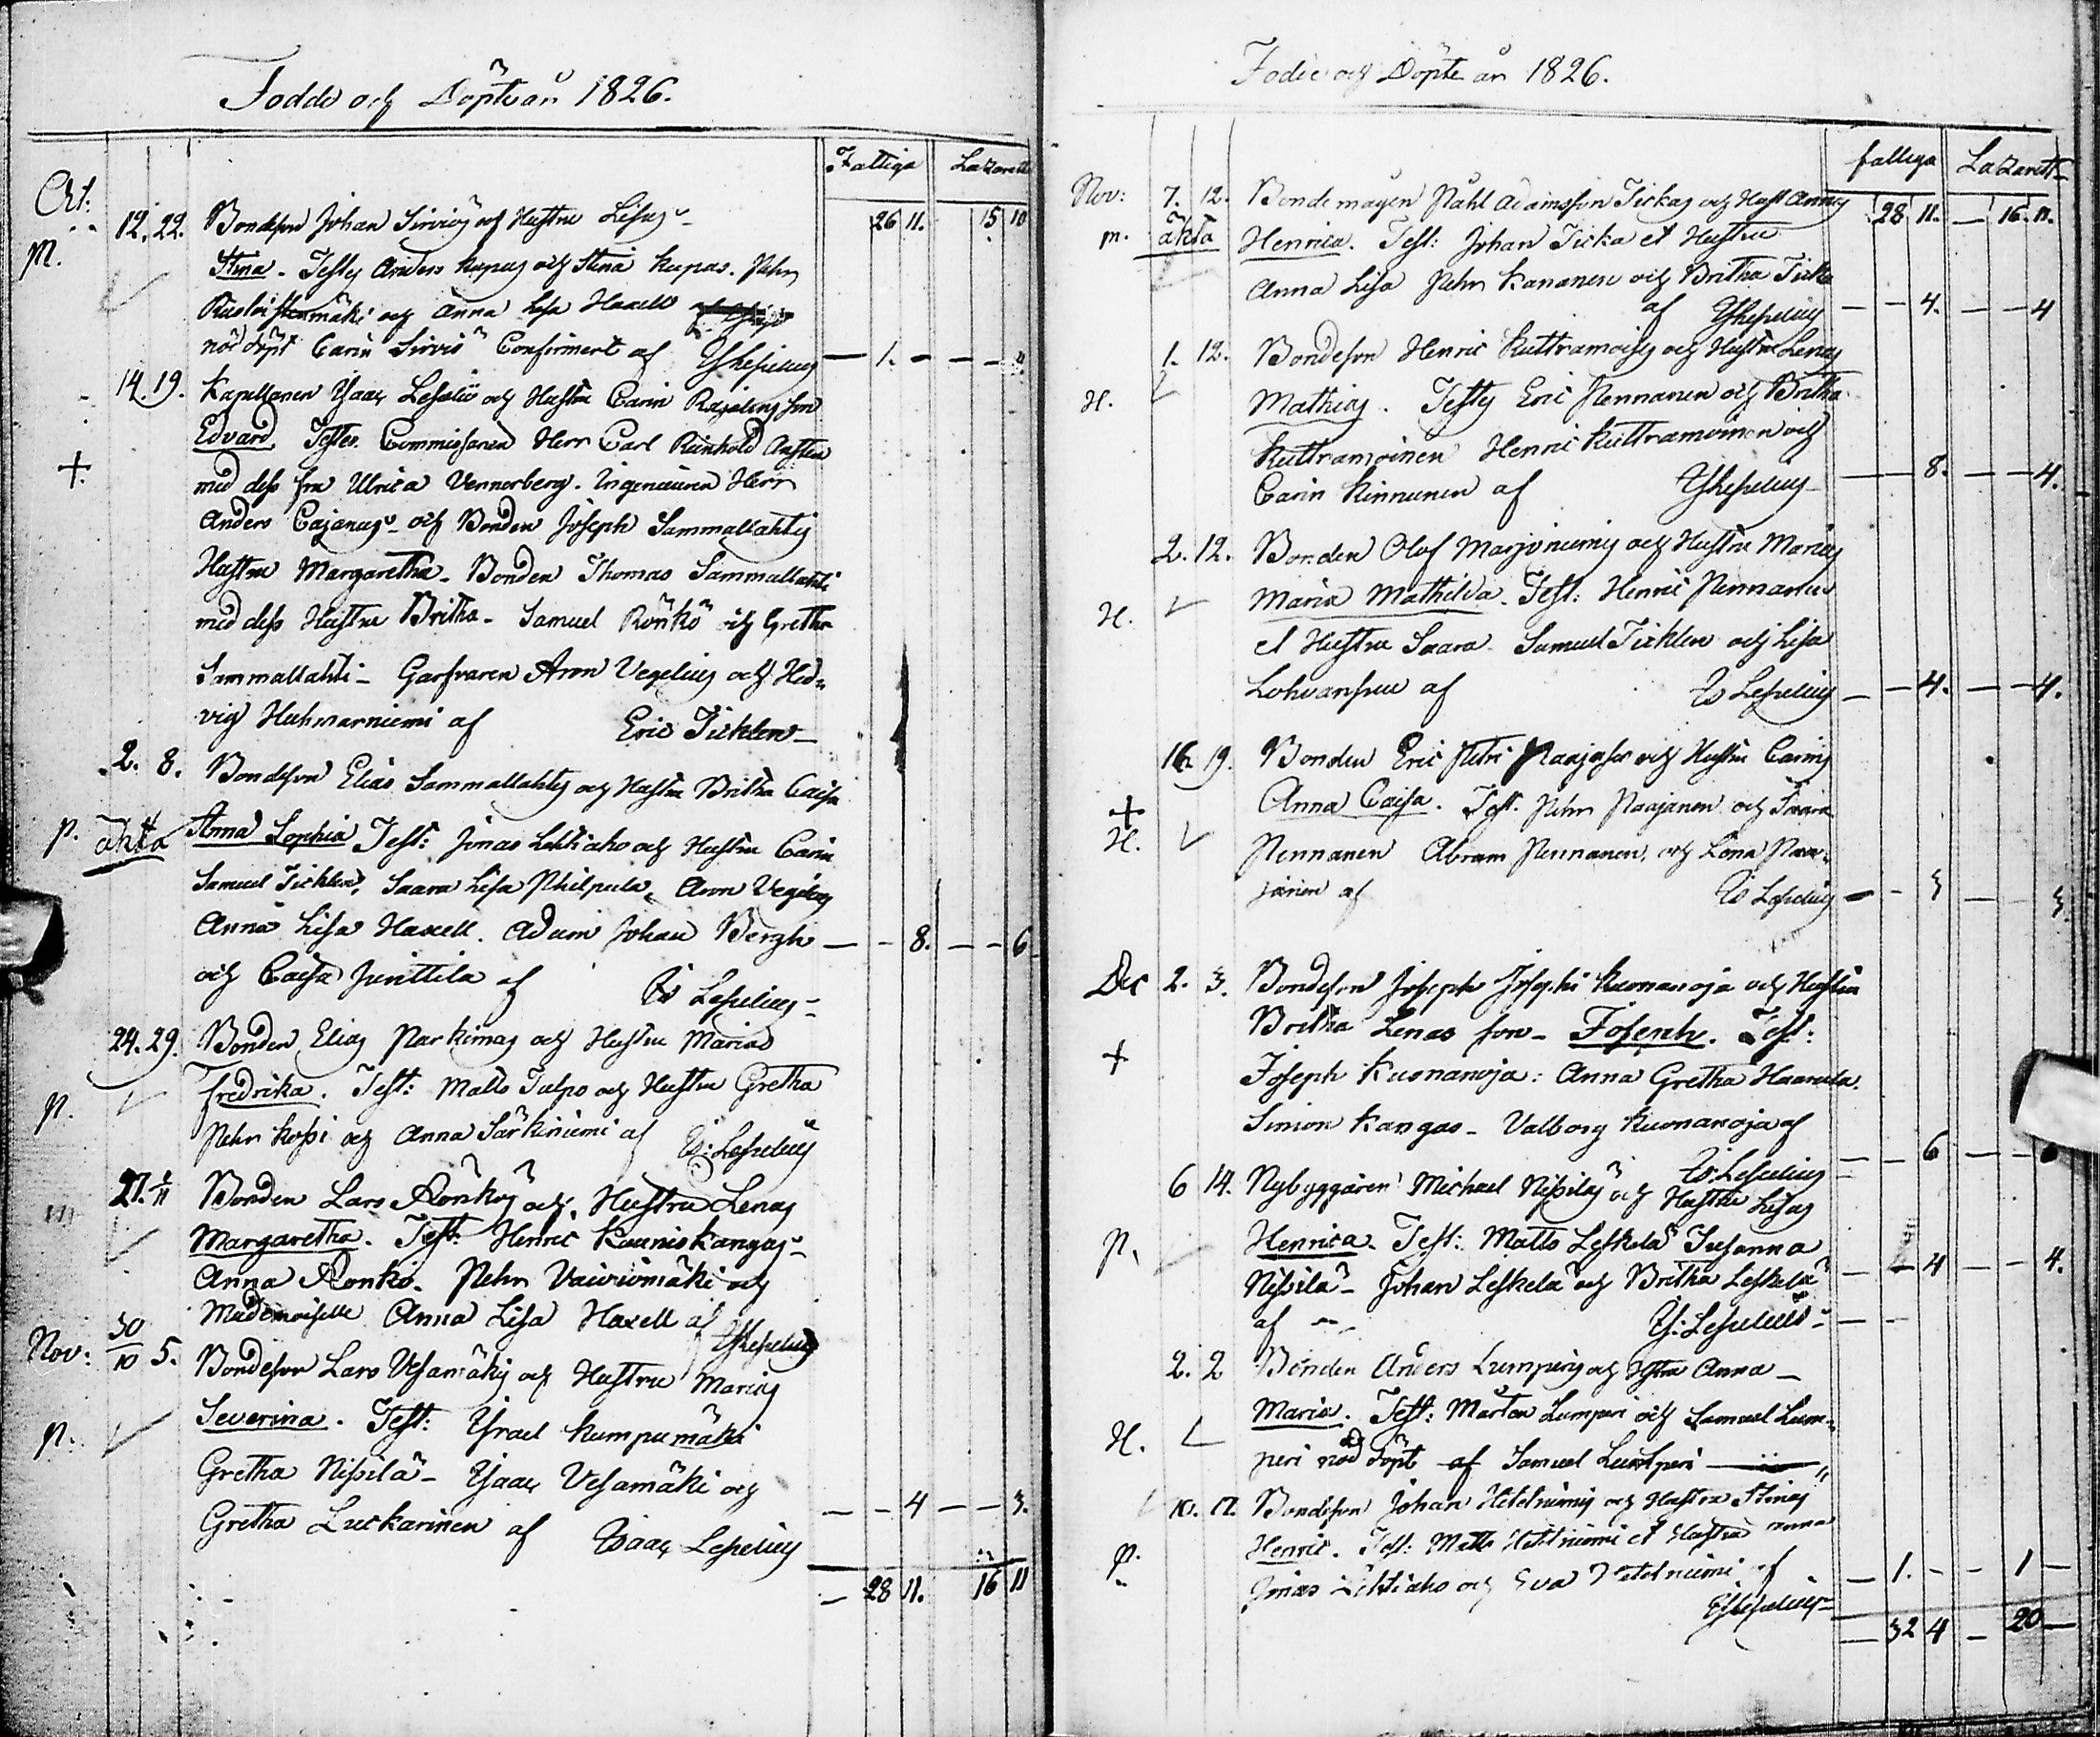 Födde och Döpte år 1826.
Fattiga Lazarett
Oct: 12. 22. Bondeson Johan Sirviös och Hustru Lisas 26 11. 15 10
M. Stina. Testes Anders Kupas och Stina Kupas. Pehr
mäki och Anna Lisa Haxell
nöd döpt Carin Sirviö Confirmert af YsLeselius — 1. — — — 4.
14. 19. Kapellanen Ysaac Leselii och Hustru Carin Rajalins son
Edvard. Testes. Commissarien Herr Carl Reinhold
+ med dess fru Ulrica Vennerberg. Ingenieuren Herr
Anders Cajanus och Bonden Joseph Sammallahtis
Hustru Margaretha. Bonden Thomas Sammallahti
med dess Hustru Britha. Samuel Rönkö och Gretha
Sammallahti — Garfvaren Aron Vegelius och Hed-
vig Huhmarniemi af Eric Ticklen —
2. 8. Bondeson Elias Sammallahtis och Hustru Britha Caisas
p. äkta Anna Sophia Test: Jonas Lehtiaho och Hustru Carin
Samuel Ticklen, Saara Lisa Philpula, Aron Vegelius
Anna Lisa Haxell. Adam Johan Bergh — — 8. — — 6
och Caisa Junttila af Is Leselius —
24. 29. Bonden Elias Parkimas och Hustru Marias
p. Fredrika. Test: Matts Talpo och Hustru Gretha
Pehr Kossi och Anna Särkiniemi af Is: Leselius
27. 5/11 Bonden Lars Rönkös och Hustru Lenas
m Margaretha. Test: Henric Kauniskangas —
Anna Rönkö. Pehr Vaiviomäki och
Mademoiselle Anna Lisa Haxell af YsLeselius
Nov: 30/10 5. Bondeson Lars Vesamäkis och Hustru Marias
p. Severina. Test: Ysrael Kumpumäki
Gretha Nissilä — Ysaac Vesamäki och
Gretha Luckarinen af Isaac Leselius — — 4 — — 3.
— 28 11. 16 11
Födde och Döpte år 1826.
fattiga Lazarett
Nov: 7. 12. Bonde mågen Påhl Adamsson Tickas och Hust Annas 28 11. — 16. 11.
m. äkta Henrica. Test: Johan Ticka et Hustru
Anna Lisa Pehr Kananen och Britha Ticka
af YsLeselius — — 4. — — 4
1. 12. Bondeson Henric Kuttramoises och Hustru Lenas
H. Mathias. Testes Eric Pennanen och Britha
Kuttramoinen Henric Kuttramoinen och
Carin Kinnunen af YsLeselius — — 8. — — 4.
2. 12. Bonden Olof Marjoniemis och Hustru Marias
H. Maria Mathilda. Test: Henric Pennanen
et Hustru Saara. Samuel Ticklen och Lisa
Lohvansuu af Is Leselius — — 4. — — 4.
16. 19. Bonden Eric Petri Paajases och Hustru Carins
+ Anna Caisa. Test. Pehr Paajanen och Saara
H. Pennanen Abram Pennanen, och Lena Paa-
janen af Is Leselius — — 3 — — 3
Dec 2. 3. Bondeson Joseph Josephi Kuonanoja och Hustru
Britha Lenas son — Joseph. Test:
+ Joseph Kuonanoja: Anna Gretha Haarala.
Simon Kangas — Valborg Kuonanoja af
Is: Leselius — — 6 — —
6 14. Nybyggaren Michael Nissiläs och Hustru Lisas
p. Henrica. Test: Matts Leskelä Susanna
Nissilä — Johan Leskelä och Britha Leskelä — — 4 — — 4.
af Ys: Leselius —
2. 2 Bonden Anders Lumperis och Hstru Anna —
Maria. Test: Mårten Lumperi och Samuel Lum-
H. peri och nöd döpt af Samuel Lumperi —
10. 17. Bondeson Johan Hetelniemis och Hustru Stinas
p. Henric. Test: Matts Hetelniemi et Hustru Anna
Jonas Lehtiaho och Eva Hetelniemi af — 1. — — 1 —
YsLeselius —
— 32 4 — 20 —